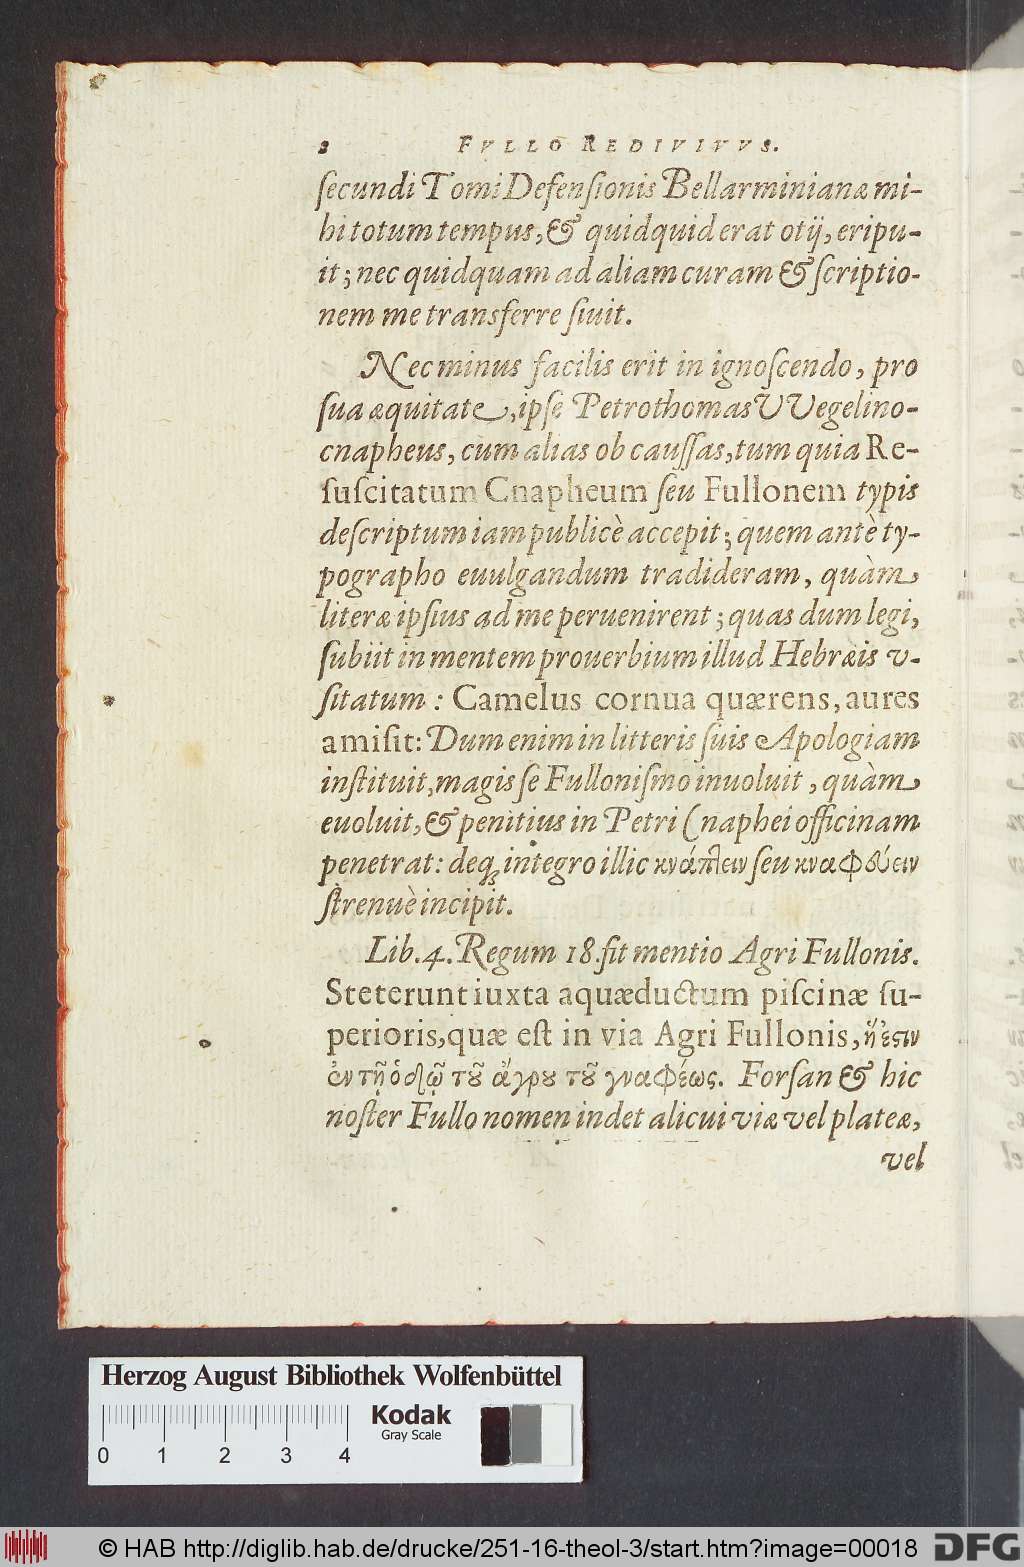 2 FVLLO REDIVIVVS.
ſecundi Tomi Defenſionis Bellarminianæ mi-
hi totum tempus, & quidquid erat otij, eripu-
it; nec quidquam ad aliam curam & ſcriptio-
nem me transferre ſiuit.
Nec minus facilis erit in ignoſcendo, pro
ſua æquitate, ipſe Petrothomas VVegelino-
cnapheus, cum alias ob cauſſas, tum quia Re-
ſuſcitatum Cnapheum ſeu Fullonem typis
deſcriptum iam publicè accepit; quem antè ty-
pographo euulgandum tradideram, quàm
literæ ipſius ad me peruenirent; quas dum legi,
ſubiit in mentem prouerbium illud Hebræis v-
ſitatum: Camelus cornua quærens, aures
amiſit: Dum enim in litteris ſuis Apologiam
inſtituit, magis ſe Fulloniſmo inuoluit, quàm
euoluit, & penitius in Petri Cnaphei officinam
penetrat: deq; integro illic κνάπτειν ſeu κναφεύειν
ſtrenuè incipit.
Lib. 4. Regum 18. fit mentio Agri Fullonis.
Steterunt iuxta aquæductum piſcinæ ſu-
perioris, quæ eſt in via Agri Fullonis, ἥ ἐστιν
ἐν τῇ ὁδῷ τοῦ ἄγρου τοῦ γναφέως. Forſan & hic
noſter Fullo nomen indet alicui viæ vel plateæ,
vel
Herzog August Bibliothek Wolfenbüttel
Kodak
Gray Scale
0 1 2 3 4
© HAB http://diglib.hab.de/drucke/251-16-theol-3/start.htm?image=00018 DFG